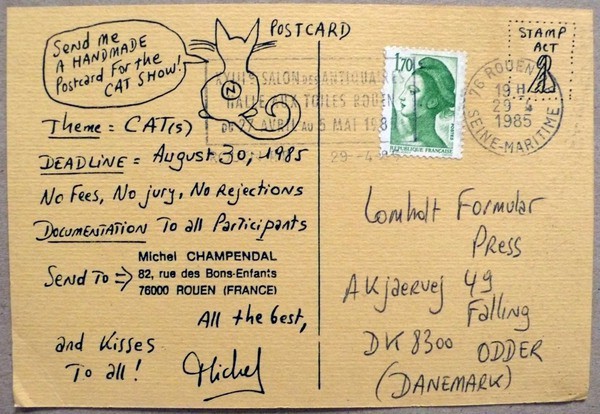 Send me
A HANDMADE
Postcard For the
CAT SHOW!
POSTCARD
N
Theme = CAT(s)
DEADLINE = August 30, 1985
No Fees, No jury, No Rejections
DOCUMENTATION To all Participants
Send To =>
Michel CHAMPENDAL
82, rue des Bons-Enfants
76000 ROUEN (FRANCE)
All the best,
and Kisses
To all!
Michel
SALON DES ANTIQUAIRES
HALLE AUX TOILES ROUEN
DU 27 AVRIL AU 5 MAI 198
29-4-85
1,70
REPUBLIQUE FRANÇAISE
STAMP
ACT
76 ROUEN
19H
29 4
1985
SEINE-MARITIME
Lomholt Formular
Press
AKjaervej 49
Falling
DK 8300 ODDER
(DANEMARK)